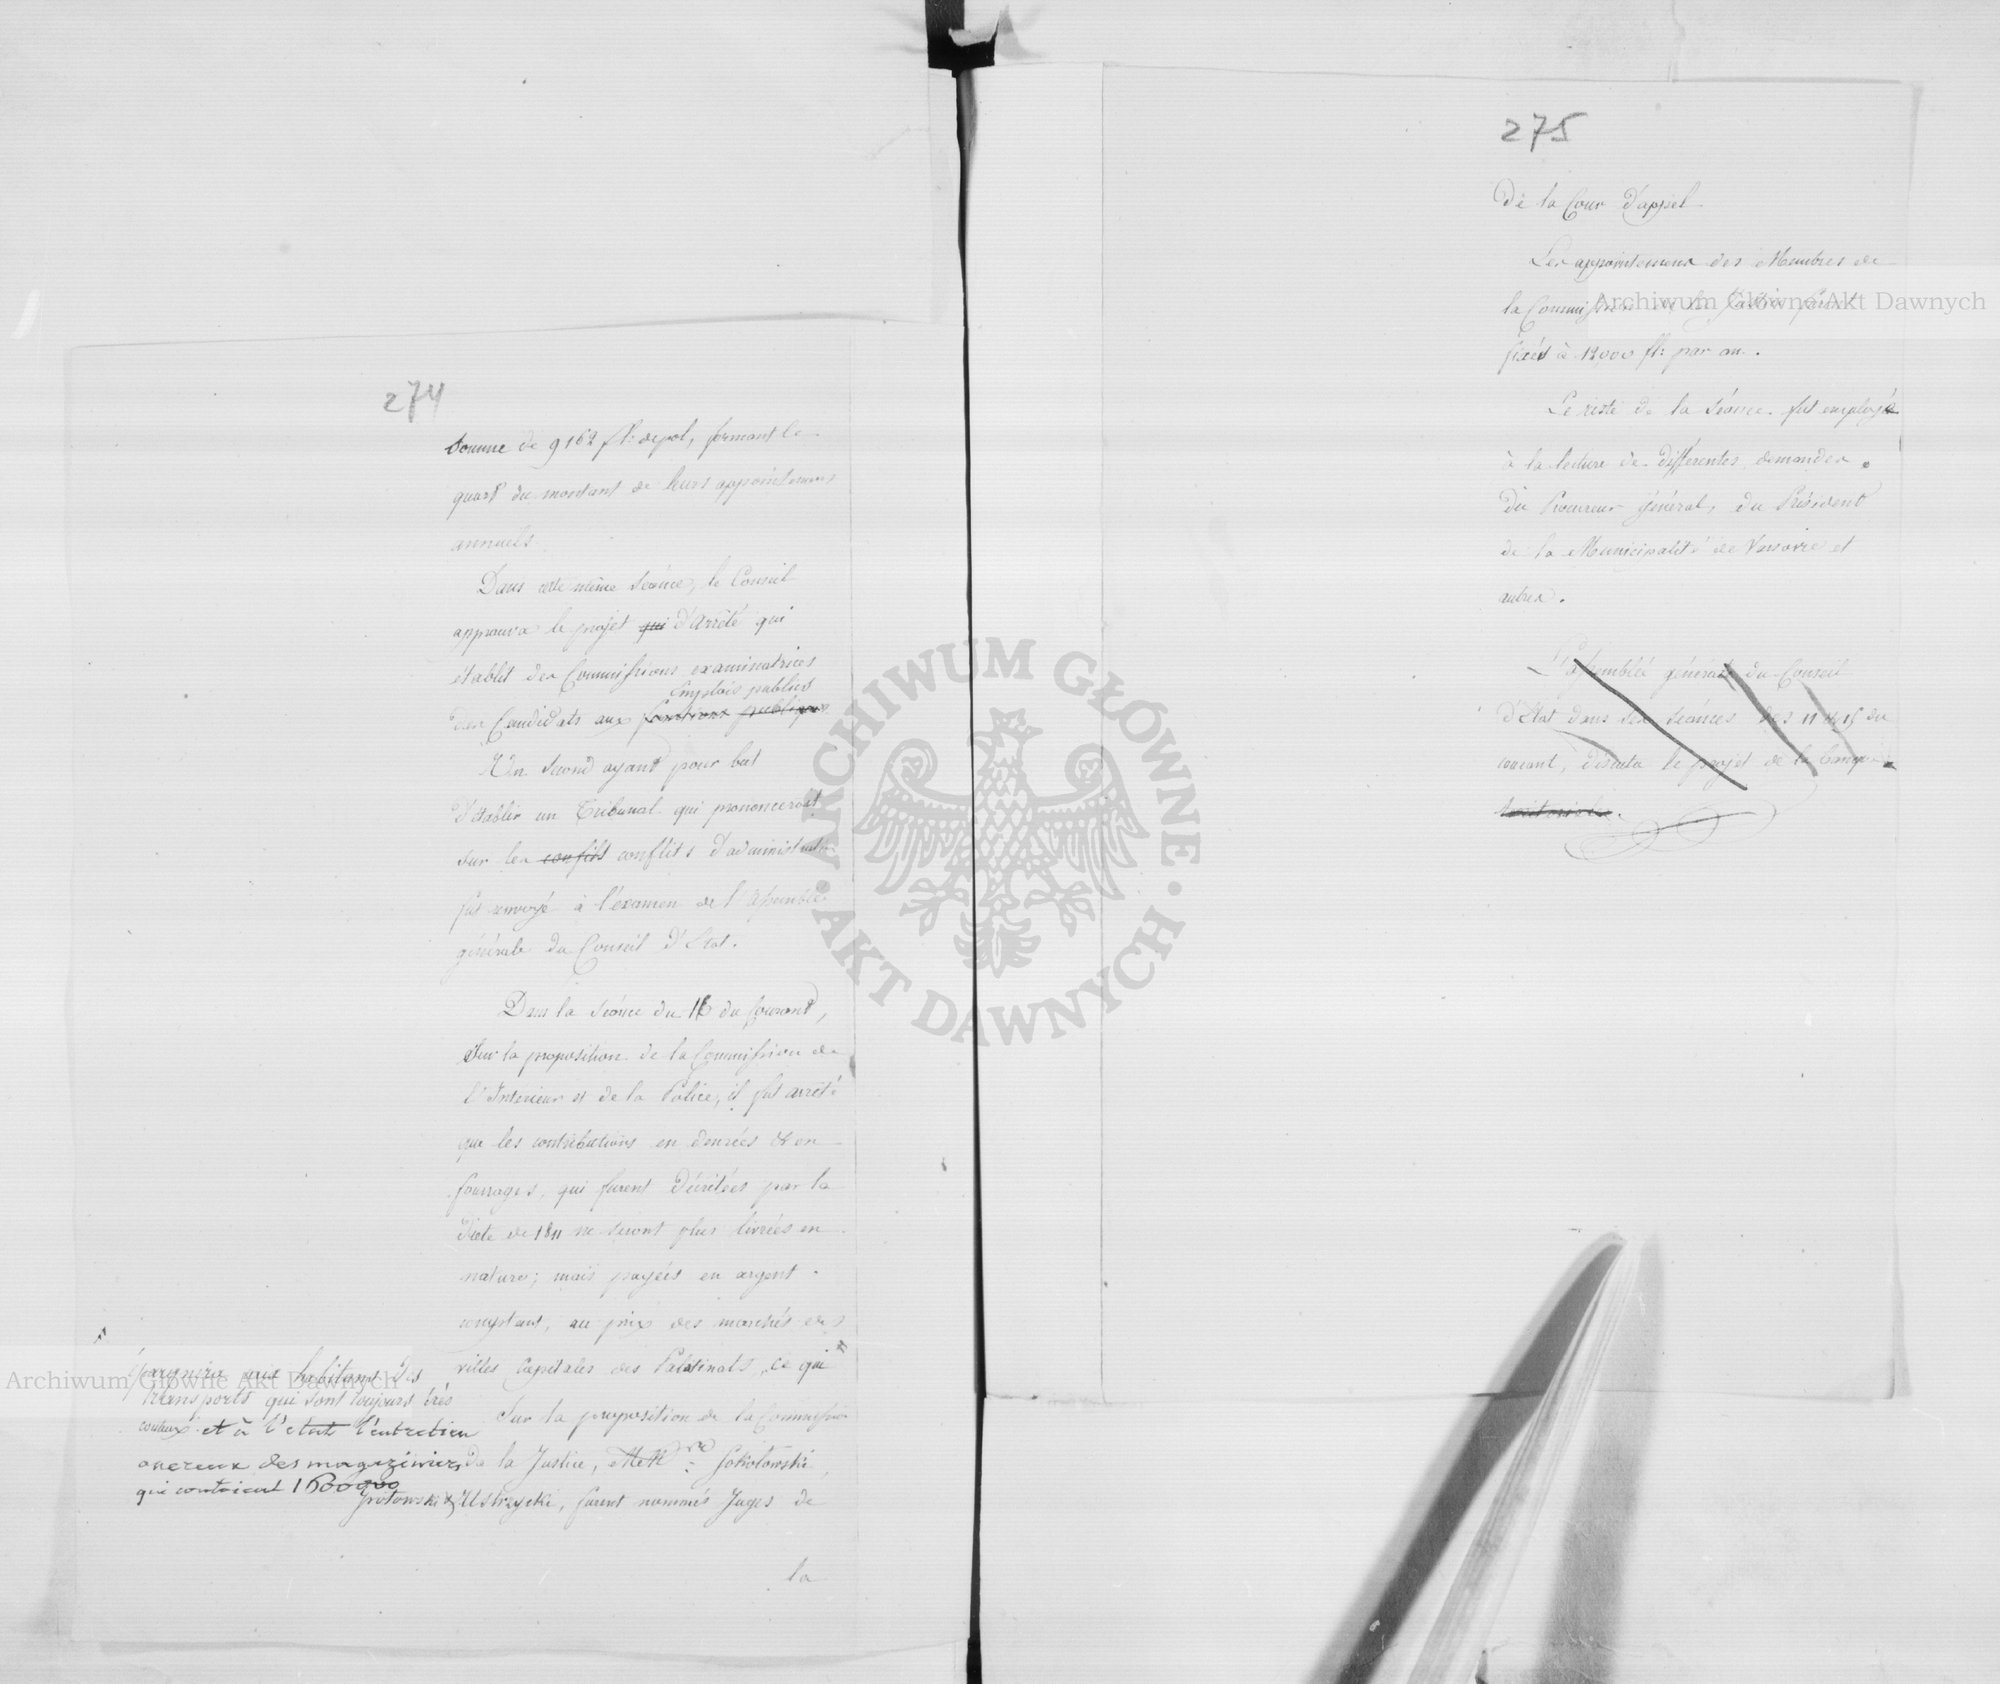 274
Somme de 9162 fl: de pol, formant le
quart du montant de leurs appointemens
annuels.
Dans cette même Séance, le Conseil
approuva le projet qui d'Arrêté qui
établit des Commissions examinatrices
Emplois publics
des Candidats aux fonctions publiques
Un second ayant pour but
d'établir un Tribunal qui prononceroit
sur les conflits d'administration
fut renvoyé à l'examen de l'Assemblée
générale du Conseil d'Etat.
Dans la Séance du 16 du Courant,
Sur la proposition de la Commission de
l'Intérieur et de la Police, il fut arrêté
que les contributions en denrées & en
fourages, qui furent décrétées par la
diete de 1811 ne seront plus livrées en
nature; mais payées en argent
comptant, au prix des marchés des
villes Capitales des Palatinats, ce qui
épargnera aux habitans des
transports qui sont toujours très
couteux et à l'etat l'entretien
onereux des magaziniers
qui contoient
Sur la proposition de la Commission
de la Justice, Sokolowski,
& Ustrzycki, furent nommés Juges de
la
275
De la Cour d'appel.
Les appointemens des Membres de
la Commission furent
fixés à 12,000 fl: par an.
Le reste de la Séance fut employé
à la lecture de différentes demandes
du Procureur Général, du Président
de la Municipalité de Varsovie et
autres.
L'assemblée générale du Conseil
d'Etat dans ses séances des 11 15 du
courant, discuta le projet de la
territoriale.
Archiwum Główne Akt Dawnych
Archiwum Główne Akt Dawnych
ARCHIWUM GŁÓWNE
AKT DAWNYCH